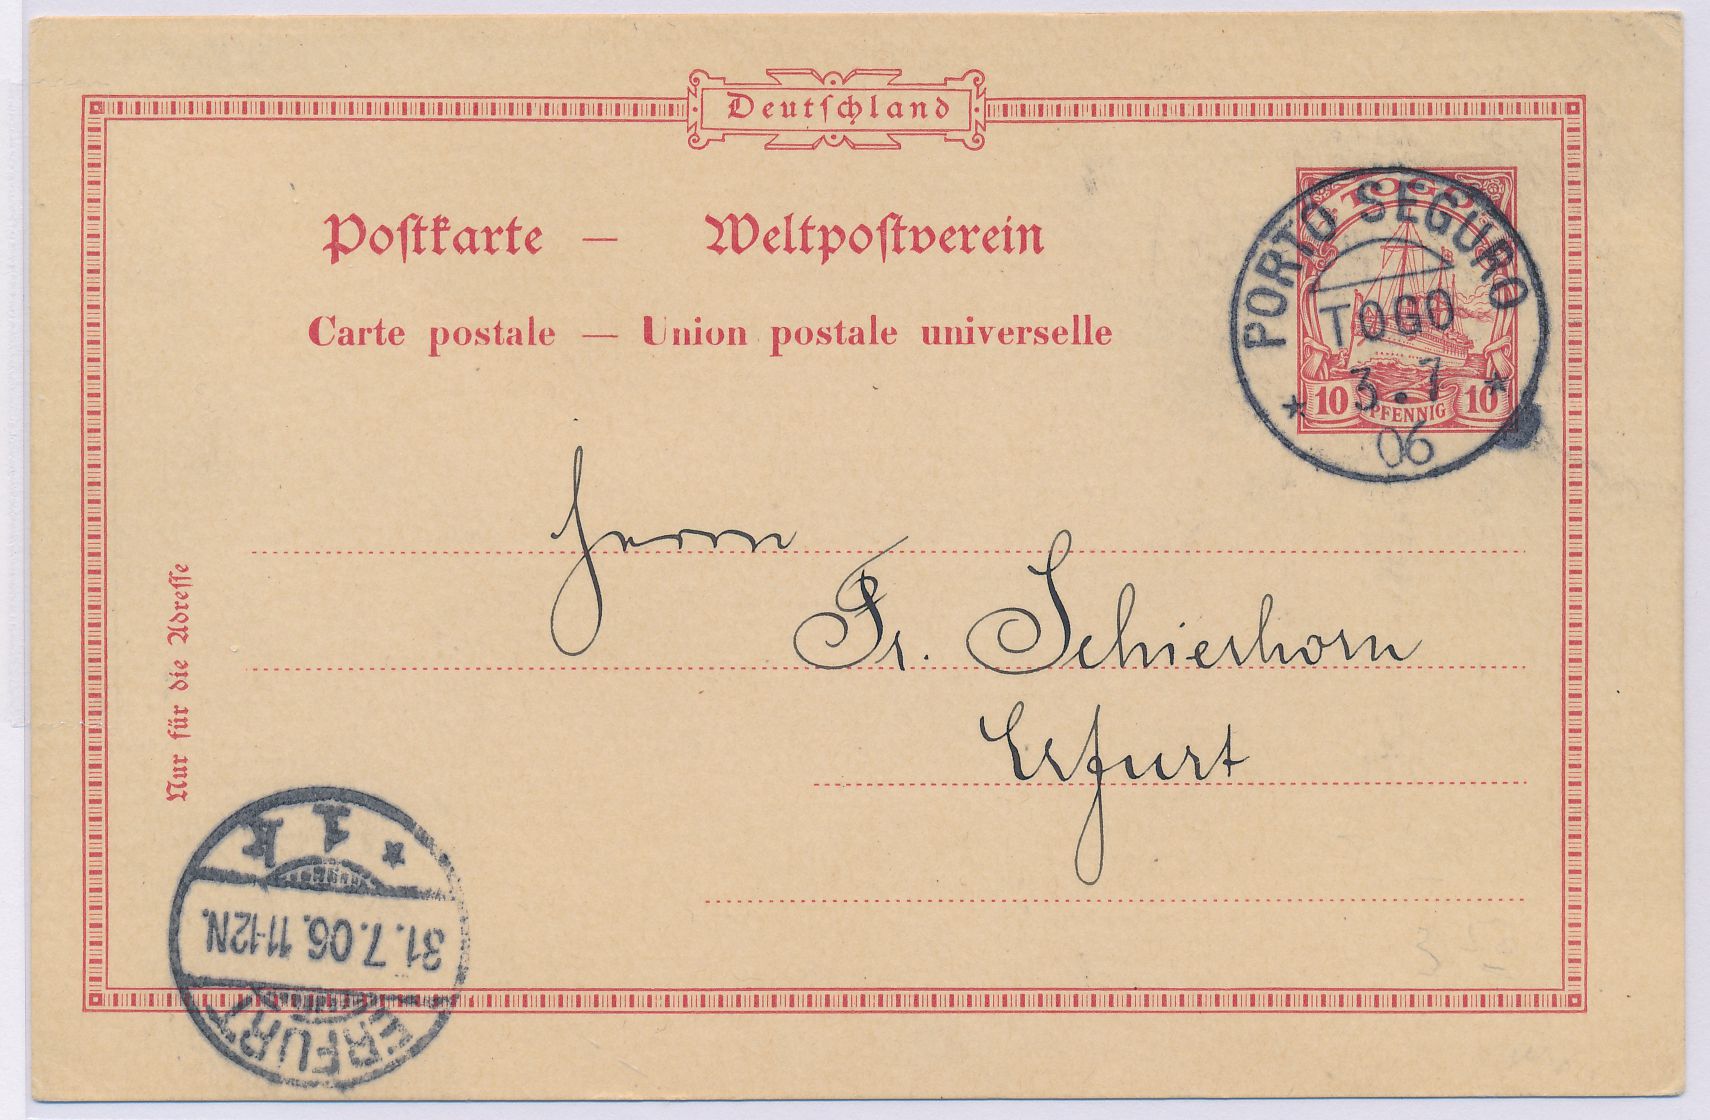 Deutschland
Postkarte — Weltpostverein
Carte postale — Union postale universelle
TOGO
10 PFENNIG 10
PORTO SEGURO
TOGO
3.7
06
Herrn
Fr. Schierhorn
Erfurt
Nur für die Adresse
ERFURT
31.7.06.11-12N.
* 1 k